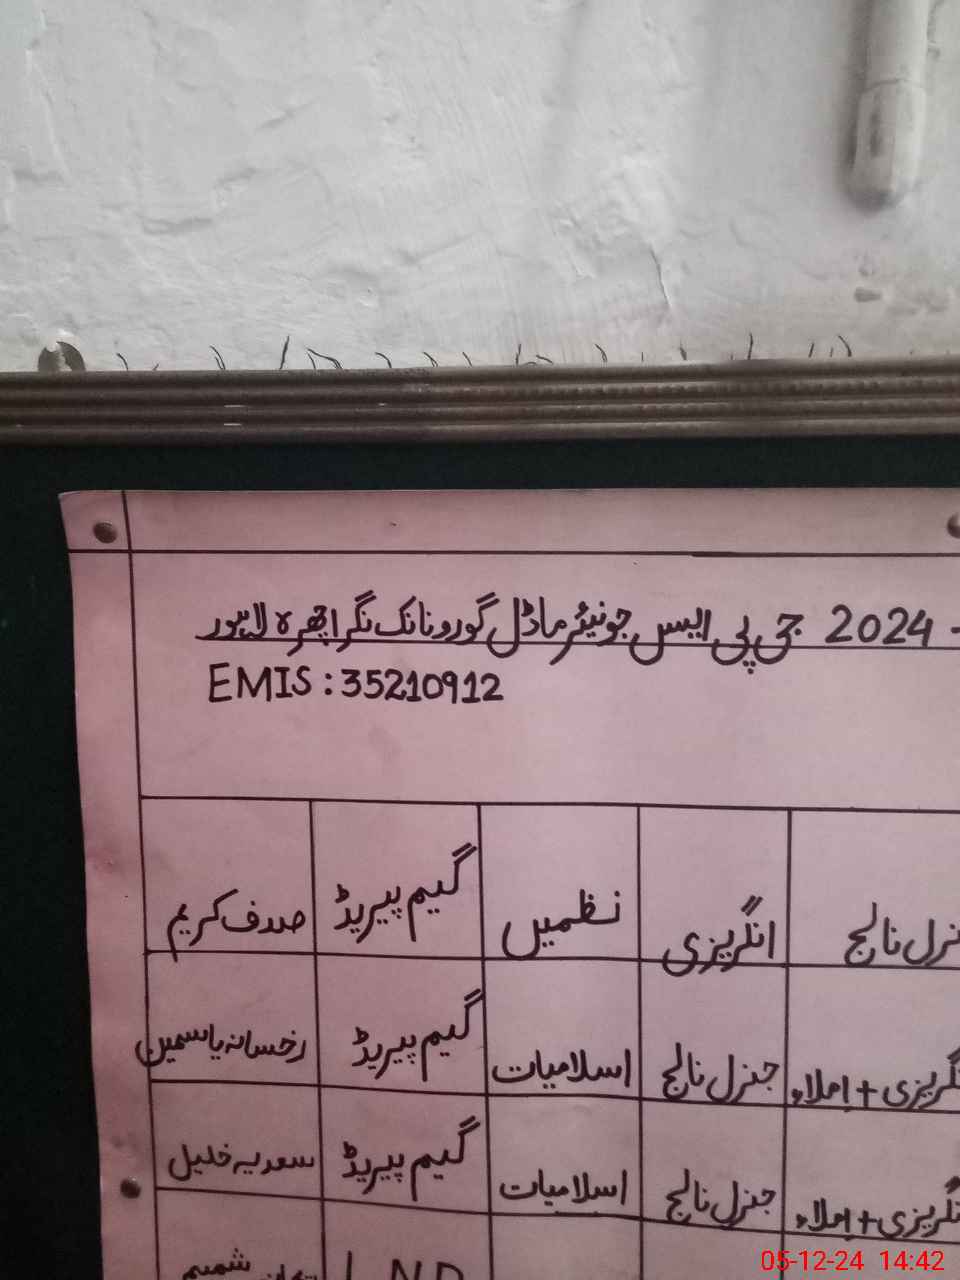 2024 جی پی ایس جونیئر ماڈل گورونانک نگر اچھرہ لاہور
EMIS : 35210912
نرل نالج انگریزی نظمیں گیم پیریڈ صدف کریم
نگریزی + املاء جنرل نالج اسلامیات گیم پیریڈ رخسانہ یاسمین
نگریزی + املاء جنرل نالج اسلامیات گیم پیریڈ سعدیہ خلیل
LND شمیم
05-12-24 14:42